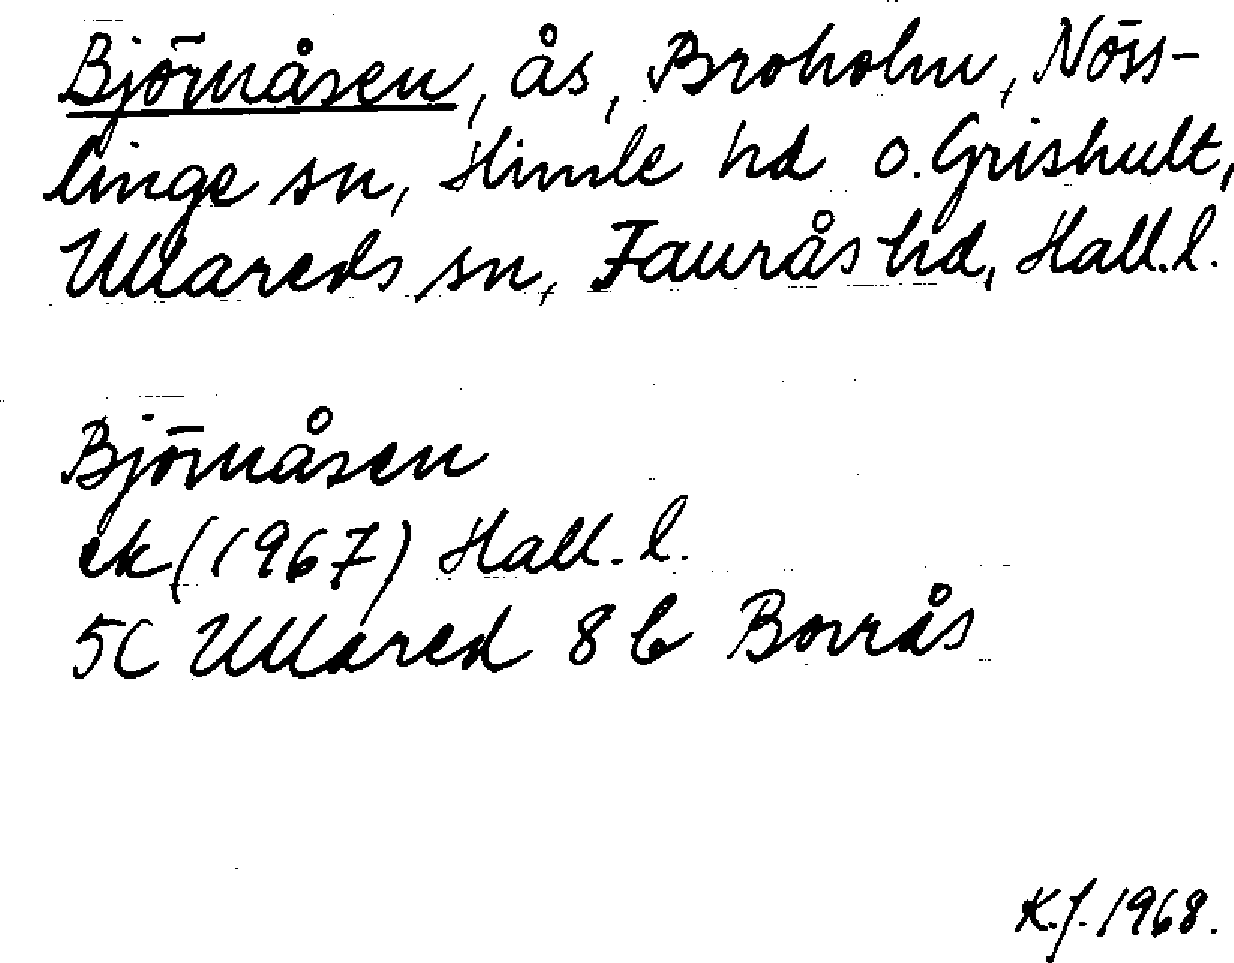 Björnåsen, ås, Broholm, Nöss-
linge sn, Himle hd o. Grishult,
Ullareds sn, Faurås hd, Hall.l.
Björnåsen
ek (1967) Hall.l.
5C Ullared 8b Borrås
K.J. 1968.